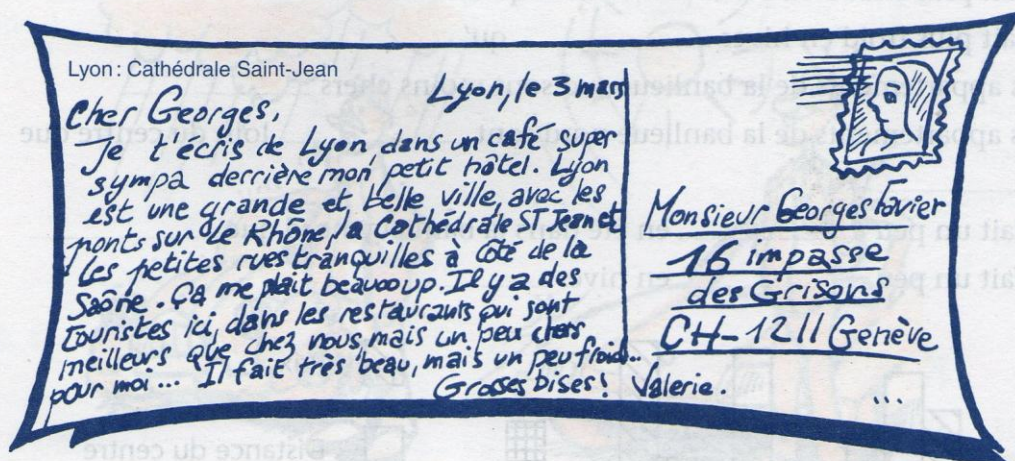 Lyon : Cathédrale Saint-Jean
Lyon, le 3 mars
Cher Georges,
Je t'écris de Lyon, dans un café super
sympa derrière mon petit hôtel. Lyon
est une grande et belle ville, avec les
ponts sur le Rhône, la Cathédrale ST Jean et
les petites rues tranquilles à côté de la
Saône. Ça me plaît beaucoup. Il y a des
touristes ici, dans les restaurants qui sont
meilleurs que chez nous, mais un peu chers
pour moi... Il fait très beau, mais un peu froid...
Grosses bises ! Valerie.
Monsieur Georges Favier
16 impasse
des Grisons
CH-1211 Genève
...